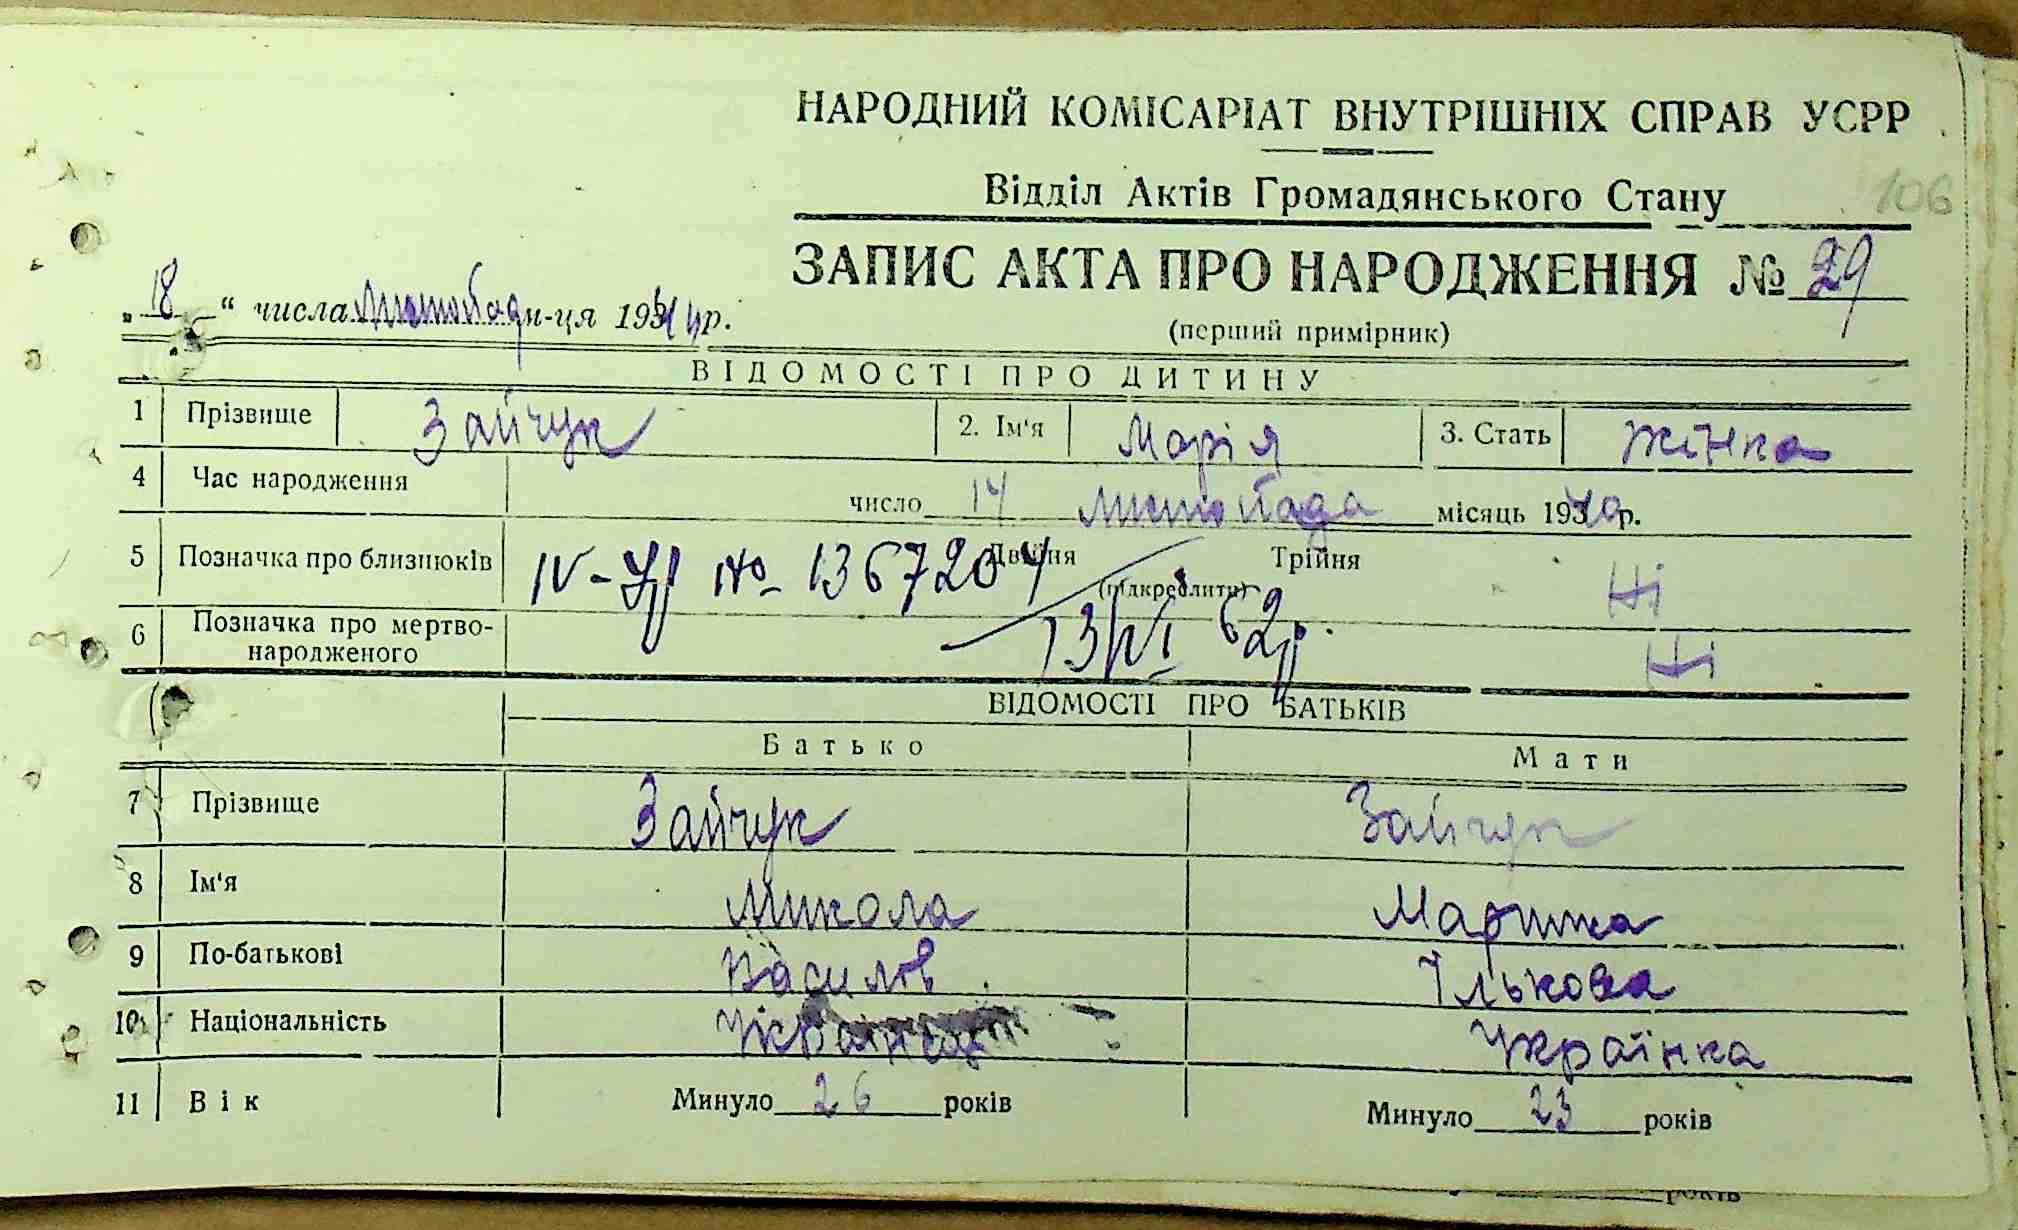 НАРОДНИЙ КОМІСАРІАТ ВНУТРІШНІХ СПРАВ УСРР
Відділ Актів Громадянського Стану
106
ЗАПИС АКТА ПРО НАРОДЖЕННЯ № 29
„18“ числа Листопад м-ця 194 р.
(перший примірник)
ВІДОМОСТІ ПРО ДИТИНУ
1 Прізвище Зайчук 2. Ім'я Марія 3. Стать Жінка
4 Час народження число 14 Листопада місяць 1940 р.
5 Позначка про близнюків Двійня Трійня (підкреслити) Ні
IV-УР № 1367204
13/VI 62р.
6 Позначка про мертвонародженого Ні
ВІДОМОСТІ ПРО БАТЬКІВ
Батько Мати
7 Прізвище Зайчук Зайчук
8 Ім'я Микола Маринка
9 По-батькові Васильов Ількова
10 Національність Українец Українка
11 Вік Минуло 26 років Минуло 23 років
років